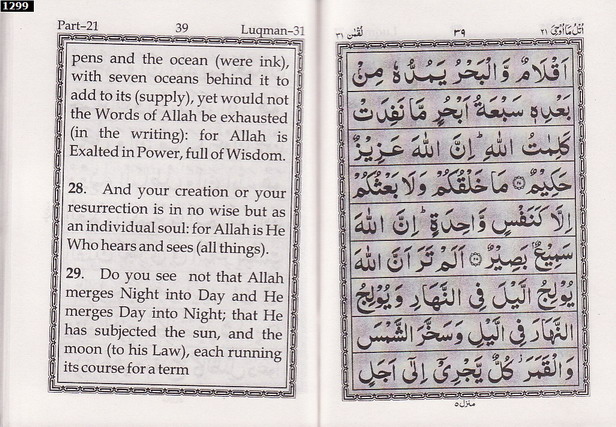 1299
Part-21 39 Luqman-31
pens and the ocean (were ink),
with seven oceans behind it to
add to its (supply), yet would not
the Words of Allah be exhausted
(in the writing): for Allah is
Exalted in Power, full of Wisdom.
28. And your creation or your
resurrection is in no wise but as
an individual soul: for Allah is He
Who hears and sees (all things).
29. Do you see not that Allah
merges Night into Day and He
merges Day into Night; that He
has subjected the sun, and the
moon (to his Law), each running
its course for a term
اُتْلُ مَآ اُوْحِیَ ٢١ ٣٩ لُقْمٰن ٣١
اَقْلَامٌ وَّالْبَحْرُ یَمُدُّهٗ مِنْۢ
بَعْدِهٖ سَبْعَةُ اَبْحُرٍ مَّا نَفِدَتْ
كَلِمٰتُ اللّٰهِ ؕ اِنَّ اللّٰهَ عَزِیْزٌ
حَكِیْمٌ ﴿٢٧﴾ مَا خَلْقُكُمْ وَلَا بَعْثُكُمْ
اِلَّا كَنَفْسٍ وَّاحِدَةٍ ؕ اِنَّ اللّٰهَ
سَمِیْعٌۢ بَصِیْرٌ ﴿٢٨﴾ اَلَمْ تَرَ اَنَّ اللّٰهَ
یُوْلِجُ الَّیْلَ فِی النَّهَارِ وَیُوْلِجُ
النَّهَارَ فِی الَّیْلِ وَسَخَّرَ الشَّمْسَ
وَالْقَمَرَ ؗ كُلٌّ یَّجْرِیْۤ اِلٰۤی اَجَلٍ
منزل ٥